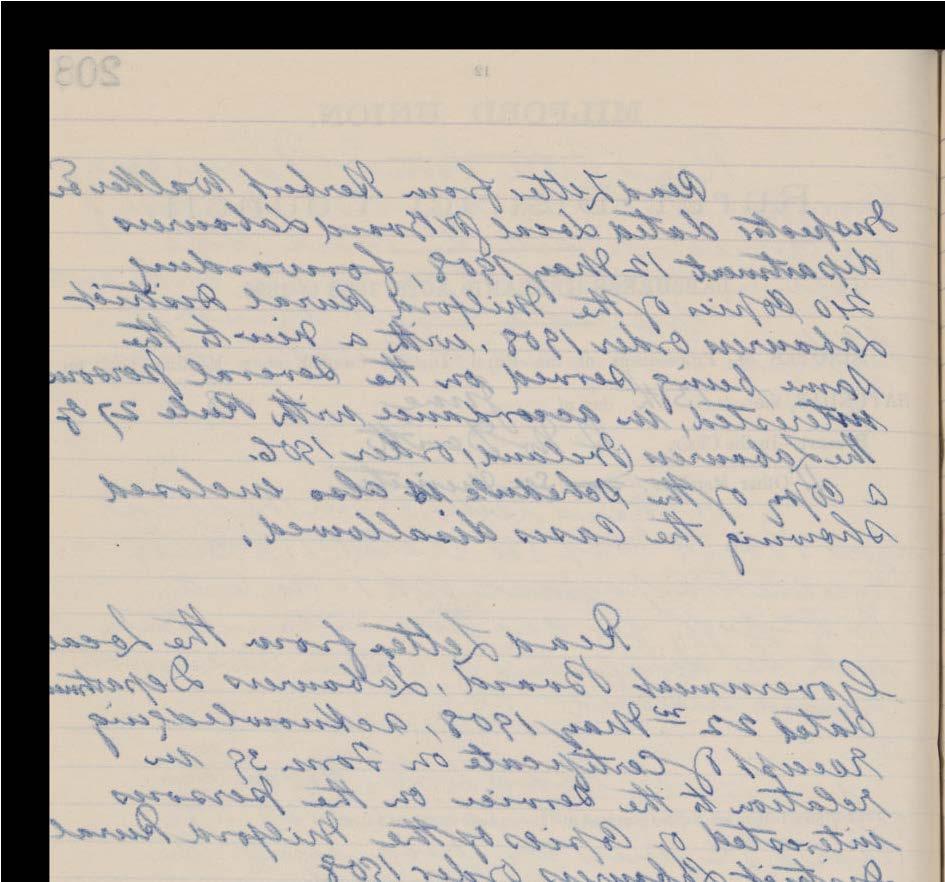 208
12
MILFORD UNION.
Read Letter from Herbert Walker
Inspector dated Local Gt Board Labourers
department 12 May 1908, forwarding
240 Copies of the Milford Rural District
Labourers Order 1908, with a view to the
same being served on the several persons
interested, in accordance with Rule 27 of
the Labourers Ireland, order 1906.
a Copy of the Schedule is also enclosed
showing the Cases disallowed.
Read Letter from the Local
Government Board, Labourers Department
dated 22nd May 1908, acknowledging
receipt of Certificate on Form 39 in
relation to the Service on the persons
interested of Copies of the Milford Rural
District Labourers Order 1908